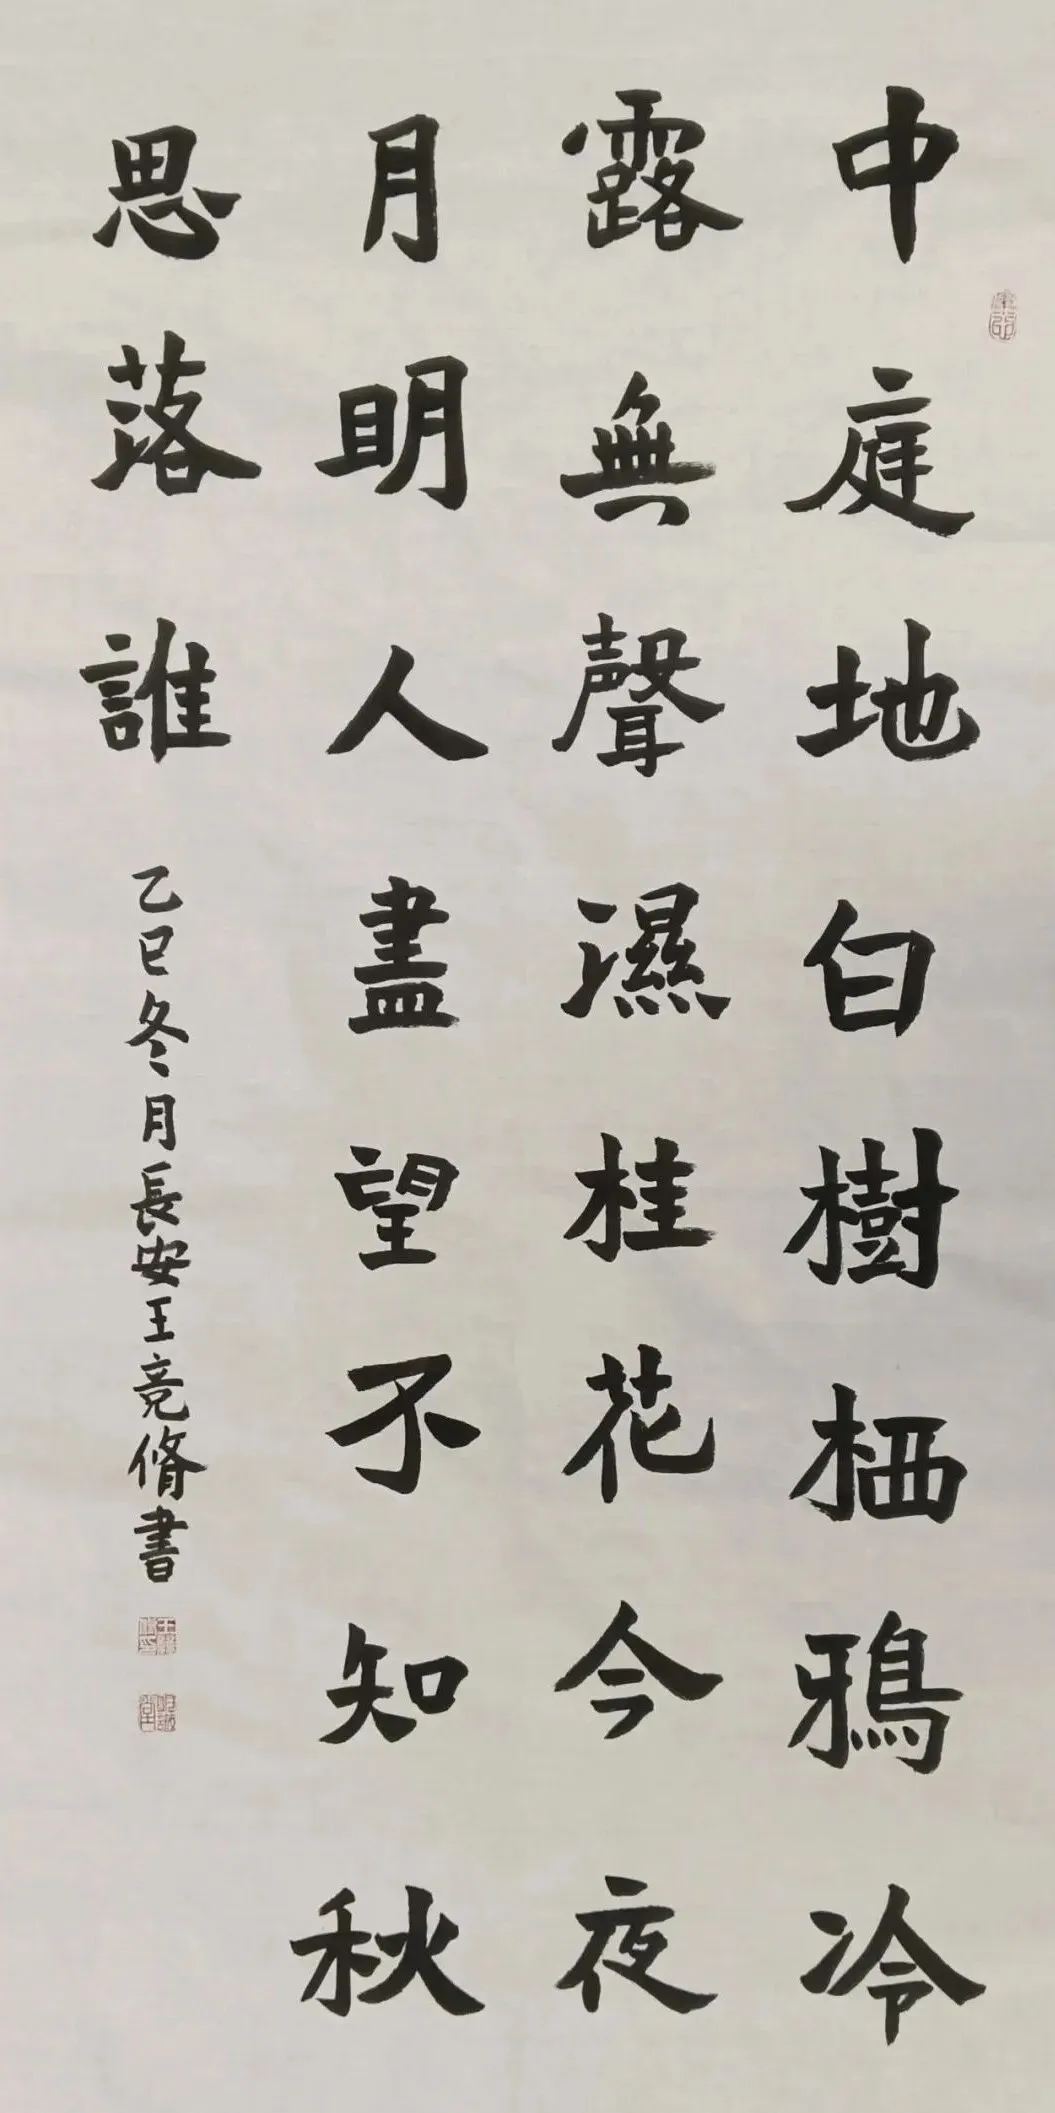 中庭地白樹栖鴉冷
露無聲濕桂花今夜
月明人盡望不知秋
思落誰
乙巳冬月長安王竞脩書